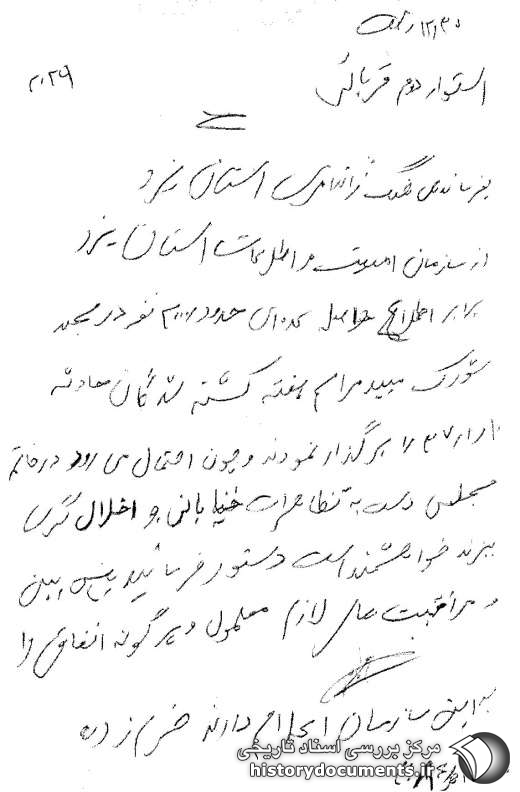 ۱۲/۳۰
استوار دوم قربانی
۲۰۲۶
بفرماندهی هنگ ژاندارمری استان یزد
از سازمان امنیت و اطلاعات استان یزد
برابر اطلاع حاصله عده‌ای حدود نفر در مسجد
مراسم هفته کشته شدگان حادثه
را برگذار نمودند و چون احتمال می رود در خاتمه
مجلس دست به تظاهرات خیابانی و اخلال گری
بزنند خواهشمند است دستور فرمائید پیش بینی
و مراقبت های لازم معمول و هرگونه اتفاقی را
به این سازمان اعلام دارند
مرکز بررسی اسناد تاریخی
historydocuments.ir